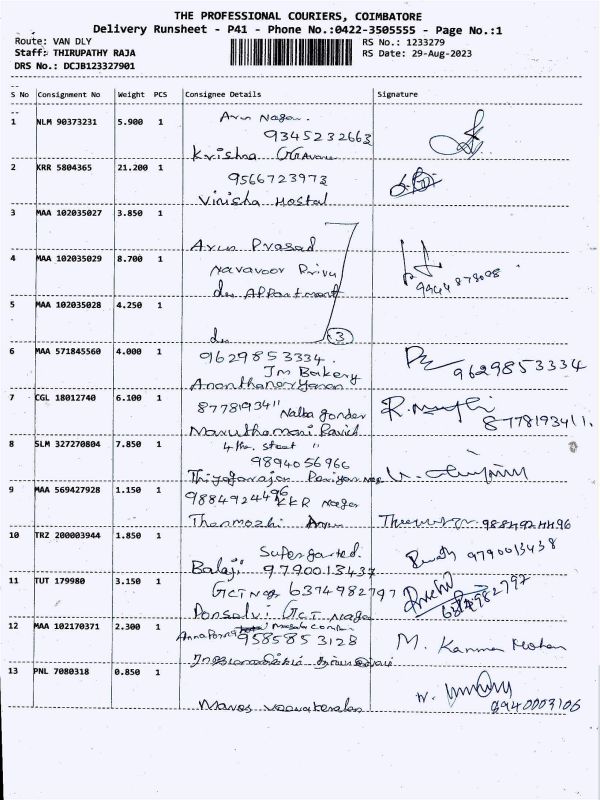 THE PROFESSIONAL COURIERS, COIMBATORE
Delivery Runsheet - P41 - Phone No.:0422-3505555 - Page No.:1
Route: VAN DLY
RS No.: 1233279
Staff: THIRUPATHY RAJA
RS Date: 29-Aug-2023
DRS No.: DCJB123327901
S No Consignment No Weight PCS Consignee Details Signature
1 NLM 90373231 5.900 1 Arun Nagar.
9345232663
Krishna
2 KRR 5804365 21.200 1
9566723973
Vinisha Hostal
3 MAA 102035027 3.850 1
Arun Prasad
4 MAA 102035029 8.700 1
Navavoor Privu
du Appartment 9944878098
5 MAA 102035028 4.250 1
du 3
6 MAA 571845560 4.000 1 9629853334. 9629853334
Jm Bakery
7 CGL 18012740 6.100 1 8778193411 Nalla Gonder 8778193411.
Maruthamani
8 SLM 327270804 7.850 1 4th. street
9894056966
Thiyagarajan
9 MAA 569427928 1.150 1 9884924496 KKR Nagar
Thenmozhi Arun 9884924496
10 TRZ 200003944 1.850 1
Balaji 9790013437 9790013438
11 TUT 179980 3.150 1 GCT Nag 6374982797 6374982797
Ponselvi GCT Nagar
12 MAA 102170371 2.300 1
9585853128 M. Kannan Mohan
13 PNL 7080318 0.850 1
9940009106